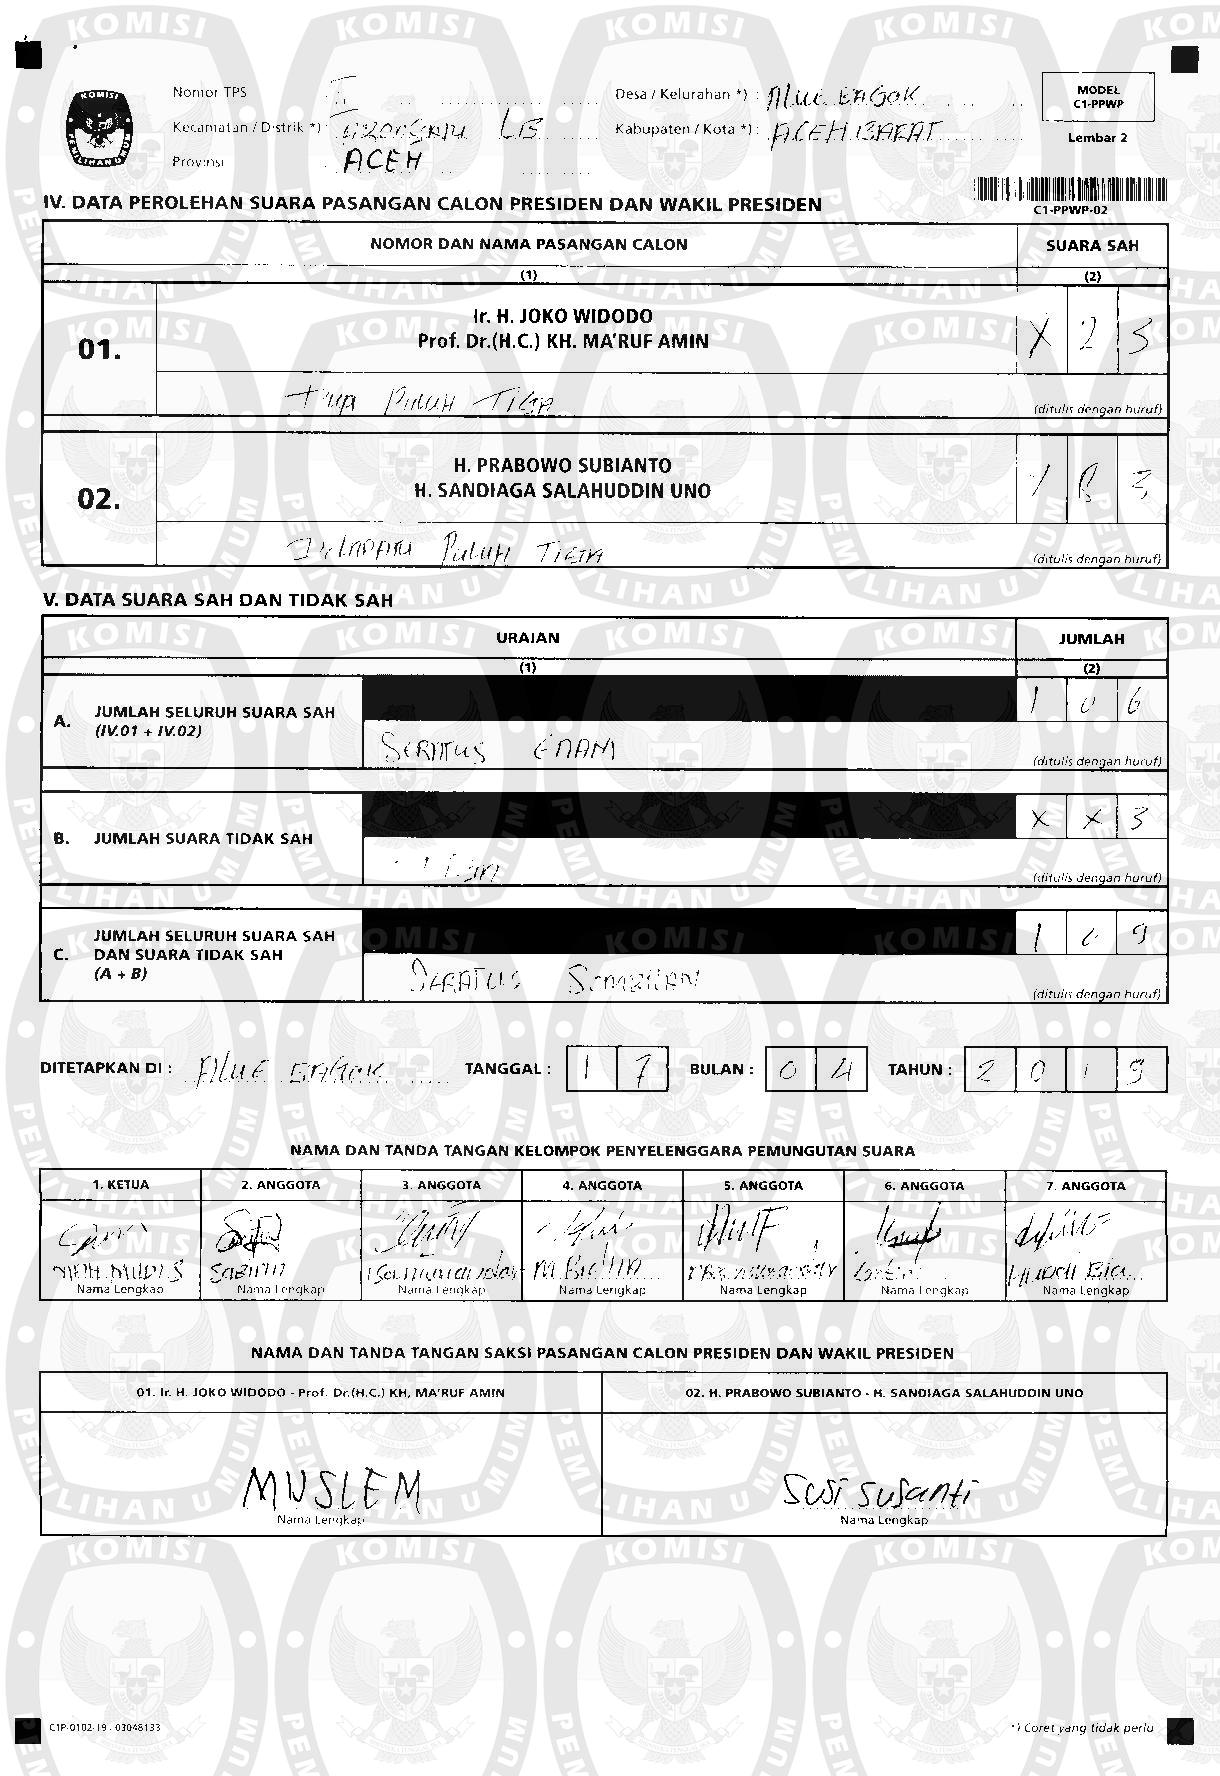 MODEL
C1-PPWP
Lembar 2
KOMISI
PEMILIHAN UMUM
Nomor TPS : II
Desa / Kelurahan *) : Alue BAGOK
Kecamatan / Distrik *) :
Kabupaten / Kota *) : ACEH BARAT
Provinsi : ACEH
C1-PPWP-02
IV. DATA PEROLEHAN SUARA PASANGAN CALON PRESIDEN DAN WAKIL PRESIDEN
NOMOR DAN NAMA PASANGAN CALON SUARA SAH
(1) (2)
01. Ir. H. JOKO WIDODO
Prof. Dr.(H.C.) KH. MA'RUF AMIN
X 2 3
PULUH TIGA
(ditulis dengan huruf)
02. H. PRABOWO SUBIANTO
H. SANDIAGA SALAHUDDIN UNO
8 3
DELAPAN PULUH TIGA
(ditulis dengan huruf)
V. DATA SUARA SAH DAN TIDAK SAH
URAIAN JUMLAH
(1) (2)
A. JUMLAH SELURUH SUARA SAH
(IV.01 + IV.02)
1 0 6
SERATUS ENAM
(ditulis dengan huruf)
B. JUMLAH SUARA TIDAK SAH
X X 3
(ditulis dengan huruf)
C. JUMLAH SELURUH SUARA SAH
DAN SUARA TIDAK SAH
(A + B)
1 0 9
SERATUS SEMBILAN
(ditulis dengan huruf)
DITETAPKAN DI : ALUE BAGOK TANGGAL : 1 7 BULAN : 0 4 TAHUN : 2 0 1 9
NAMA DAN TANDA TANGAN KELOMPOK PENYELENGGARA PEMUNGUTAN SUARA
1. KETUA 2. ANGGOTA 3. ANGGOTA 4. ANGGOTA 5. ANGGOTA 6. ANGGOTA 7. ANGGOTA
Nama Lengkap Nama Lengkap Nama Lengkap Nama Lengkap Nama Lengkap Nama Lengkap Nama Lengkap
NAMA DAN TANDA TANGAN SAKSI PASANGAN CALON PRESIDEN DAN WAKIL PRESIDEN
01. Ir. H. JOKO WIDODO - Prof. Dr.(H.C.) KH. MA'RUF AMIN
02. H. PRABOWO SUBIANTO - H. SANDIAGA SALAHUDDIN UNO
MUSLEM
Susi Susanti
Nama Lengkap Nama Lengkap
C1P-0102-19 - 03048133
*) Coret yang tidak perlu